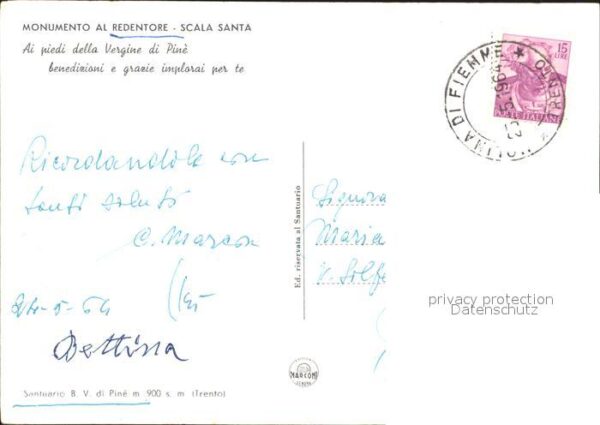 MONUMENTO AL REDENTORE - SCALA SANTA
Ai piedi della Vergine di Pinè
benedizioni e grazie implorai per te
15
LIRE
POSTE ITALIANE
MOLINA DI FIEMME ★ TRENTO
5.1964
Ricordandola con
tanti saluti
C. Marcon
24-5-64
Bettina
Signora
Maria
V. Solfe
Ed. riservata al Santuario
privacy protection
Datenschutz
MARCONI
Santuario B. V. di Piné m 900 s. m (Trento)